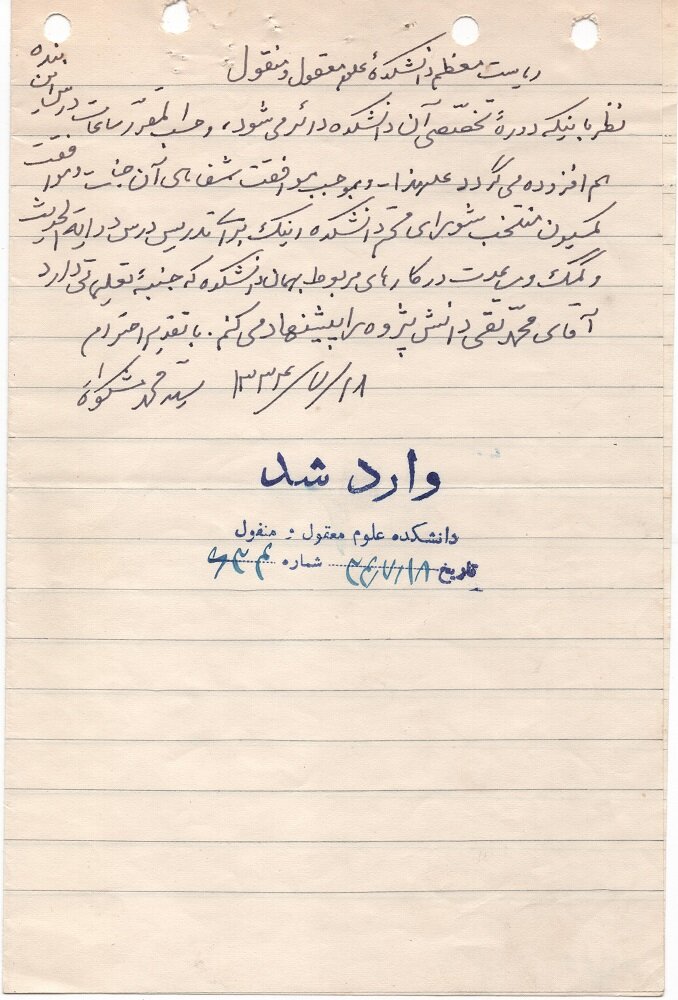 ریاست معظم دانشکدهٔ علوم معقول و منقول
نظر باینکه دورهٔ تخصّصی آن دانشکده دائر می‌شود، و حسب المقرّر ساعات درس این بنده
هم افزوده می‌گردد علیهذا و بموجب موافقت شفاهی آن جناب و موافقت
کمیسیون منتخب شورای محترم دانشکده اینک برای تدریس درس درایة الحدیث
و کمک و مساعدت در کارهای مربوط بهمان دانشکده که جنبهٔ تعلیماتی دارد
آقای محمّد تقی دانش پژوه را پیشنهاد می‌کنم. با تقدیم احترام
۱۳۳۴/۷/۱۸ سید محمد مشکوة
وارد شد
دانشکده علوم معقول و منقول
تاریخ ۳۴/۷/۱۸ شماره